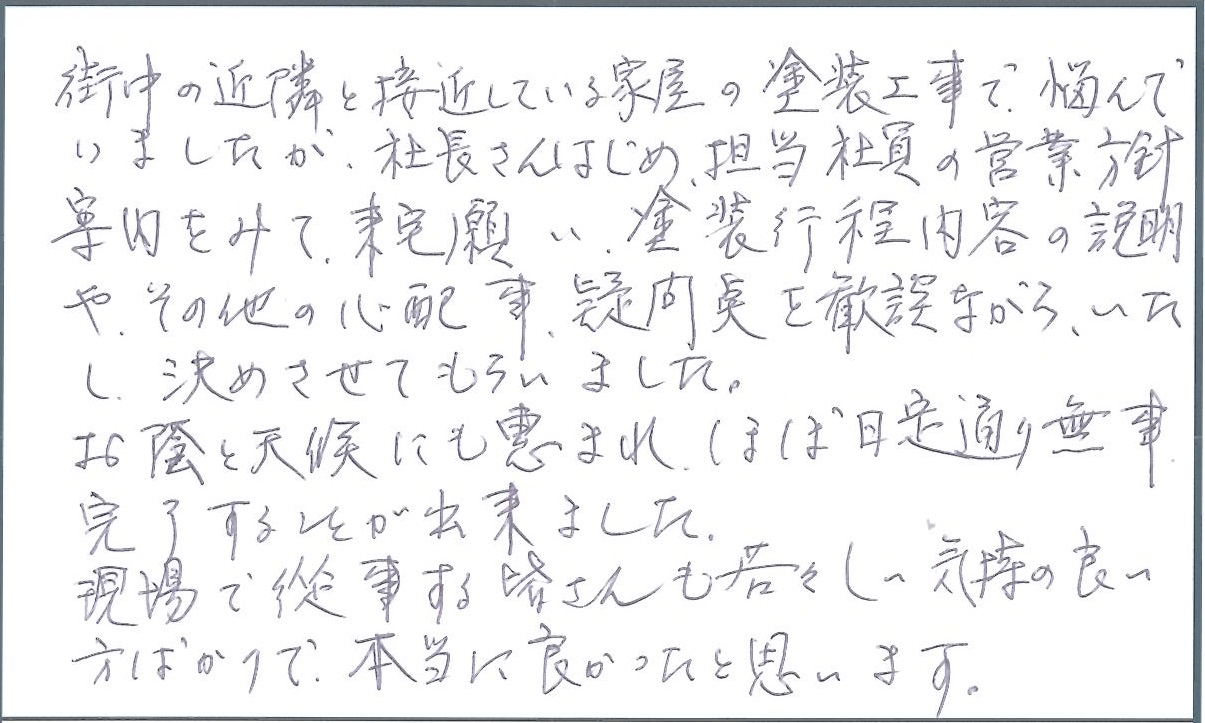 街中の近隣と接近している家屋の塗装工事で、悩んで
いましたが、社長さんはじめ、担当社員の営業方針
案内をみて、来宅願い、塗装行程内容の説明
や、その他の心配事、疑問点を歓談ながら、いた
し、決めさせてもらいました。
お陰と天候にも恵まれ、ほぼ日程通り無事
完了することが出来ました。
現場で従事する皆さんも若々しい気持の良い
方ばかりで、本当に良かったと思います。